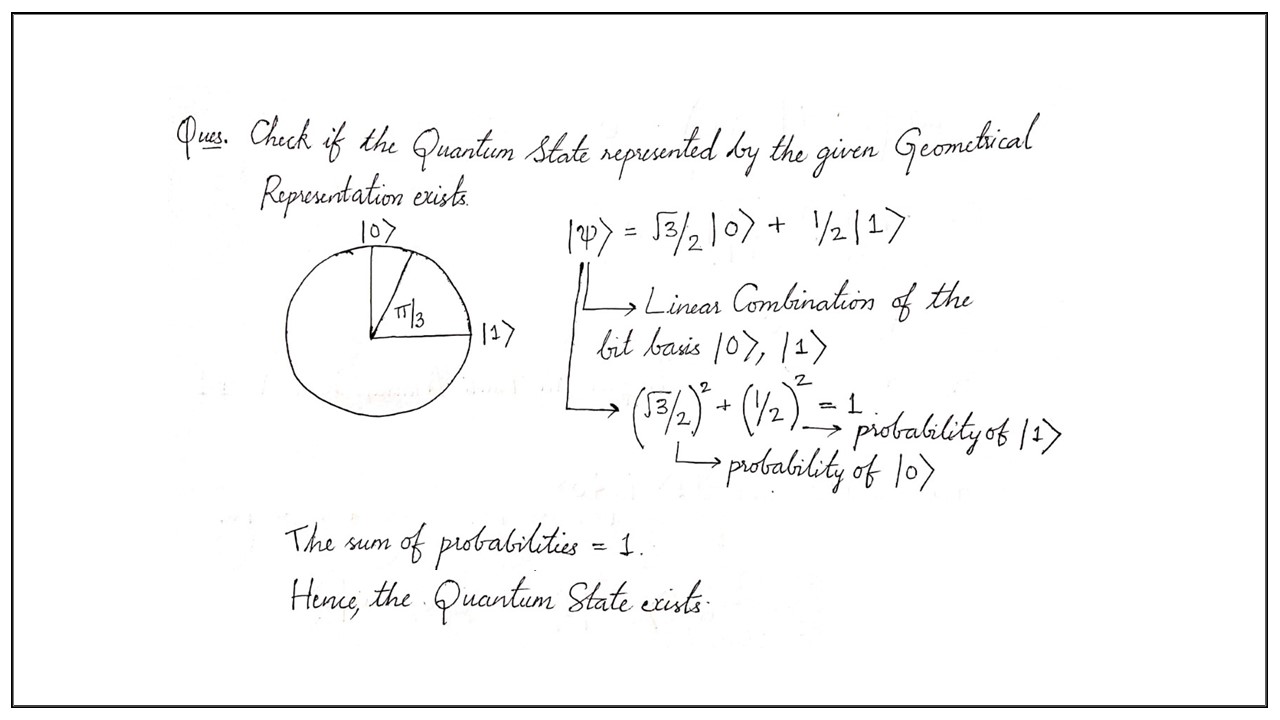 Ques. Check if the Quantum State represented by the given Geometrical
Representation exists.
|0⟩
π/3
|1⟩
|ψ⟩ = √3/2 |0⟩ + 1/2 |1⟩
Linear Combination of the
bit basis |0⟩, |1⟩
(√3/2)² + (1/2)² = 1
probability of |1⟩
probability of |0⟩
The sum of probabilities = 1.
Hence, the Quantum State exists.